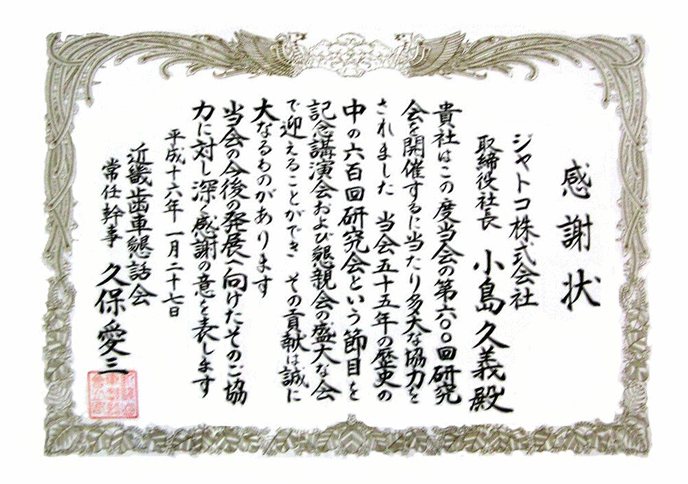 感謝状
ジヤトコ株式会社
取締役社長 小島久義殿
貴社はこの度当会の第六〇〇回研究
会を開催するに当たり多大な協力を
されました 当会五十五年の歴史の
中の六百回研究会という節目を
記念講演会および懇親会の盛大な会
で迎えることができ その貢献は誠に
大なるものがあります
当会の今後の発展へ向けたそのご協
力に対し深く感謝の意を表します
平成十六年 一月二十七日
近畿歯車懇話会
常任幹事 久保愛三